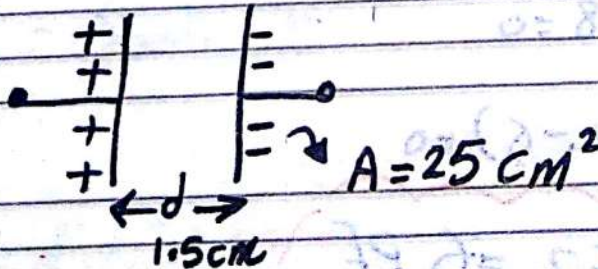 + −
+ −
+ =
+ A = 25 cm²
← d →
1.5 cm